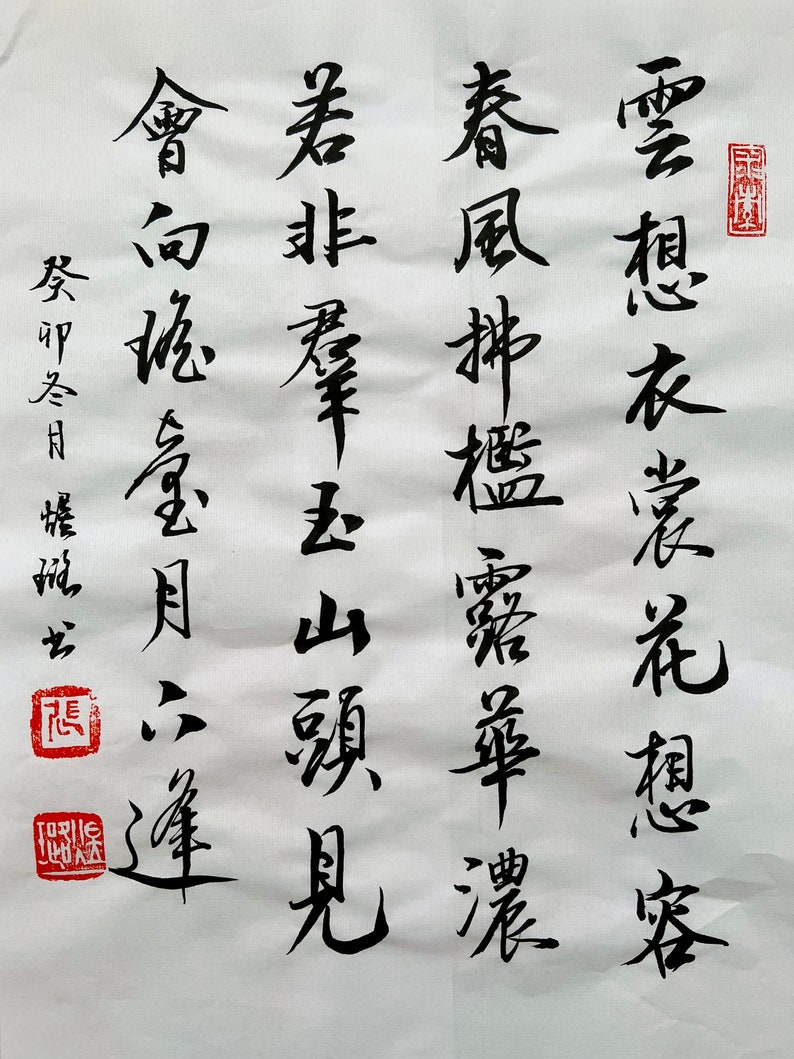 雲想衣裳花想容
春風拂檻露華濃
若非羣玉山頭見
會向瑤臺月下逢
癸卯冬月 璐书
張